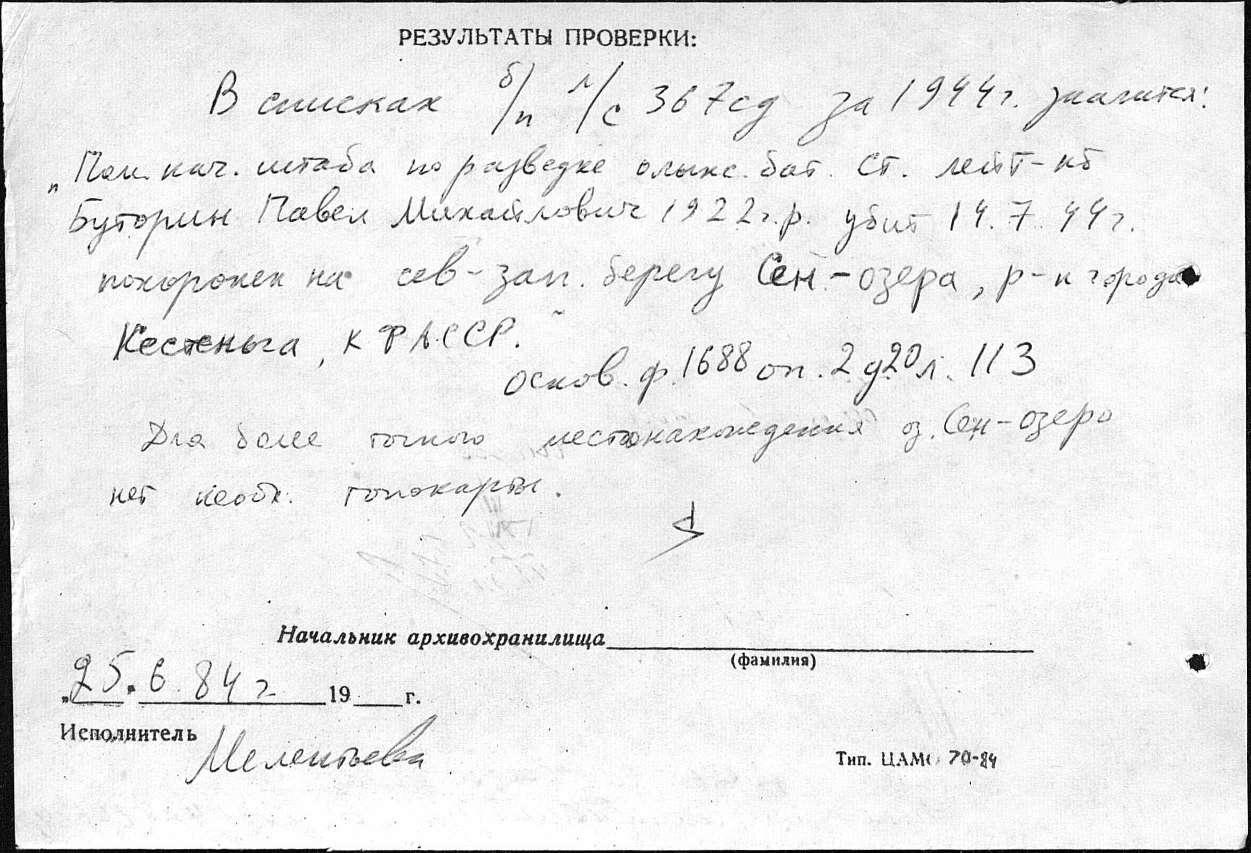 РЕЗУЛЬТАТЫ ПРОВЕРКИ:
В списках б/п л/с 367сд за 1944г. значится:
„Пом. нач. штаба по разведке олыж. бат. ст. лейт-нт
Буторин Павел Михайлович 1922 г.р. убит 14.7.44г.
похоронен на сев-зап. берегу Сен-озера, р-н города
Кестеньга, КФАССР."
основ. ф. 1688 оп. 2 д. 20 л. 113
Для более точного местонахождения оз. Сен-озеро
нет необх. топокарты.
Начальник архивохранилища
(фамилия)
„25. 6. 84г 19 г.
Исполнитель Мелентьева
Тип. ЦАМО 70-84